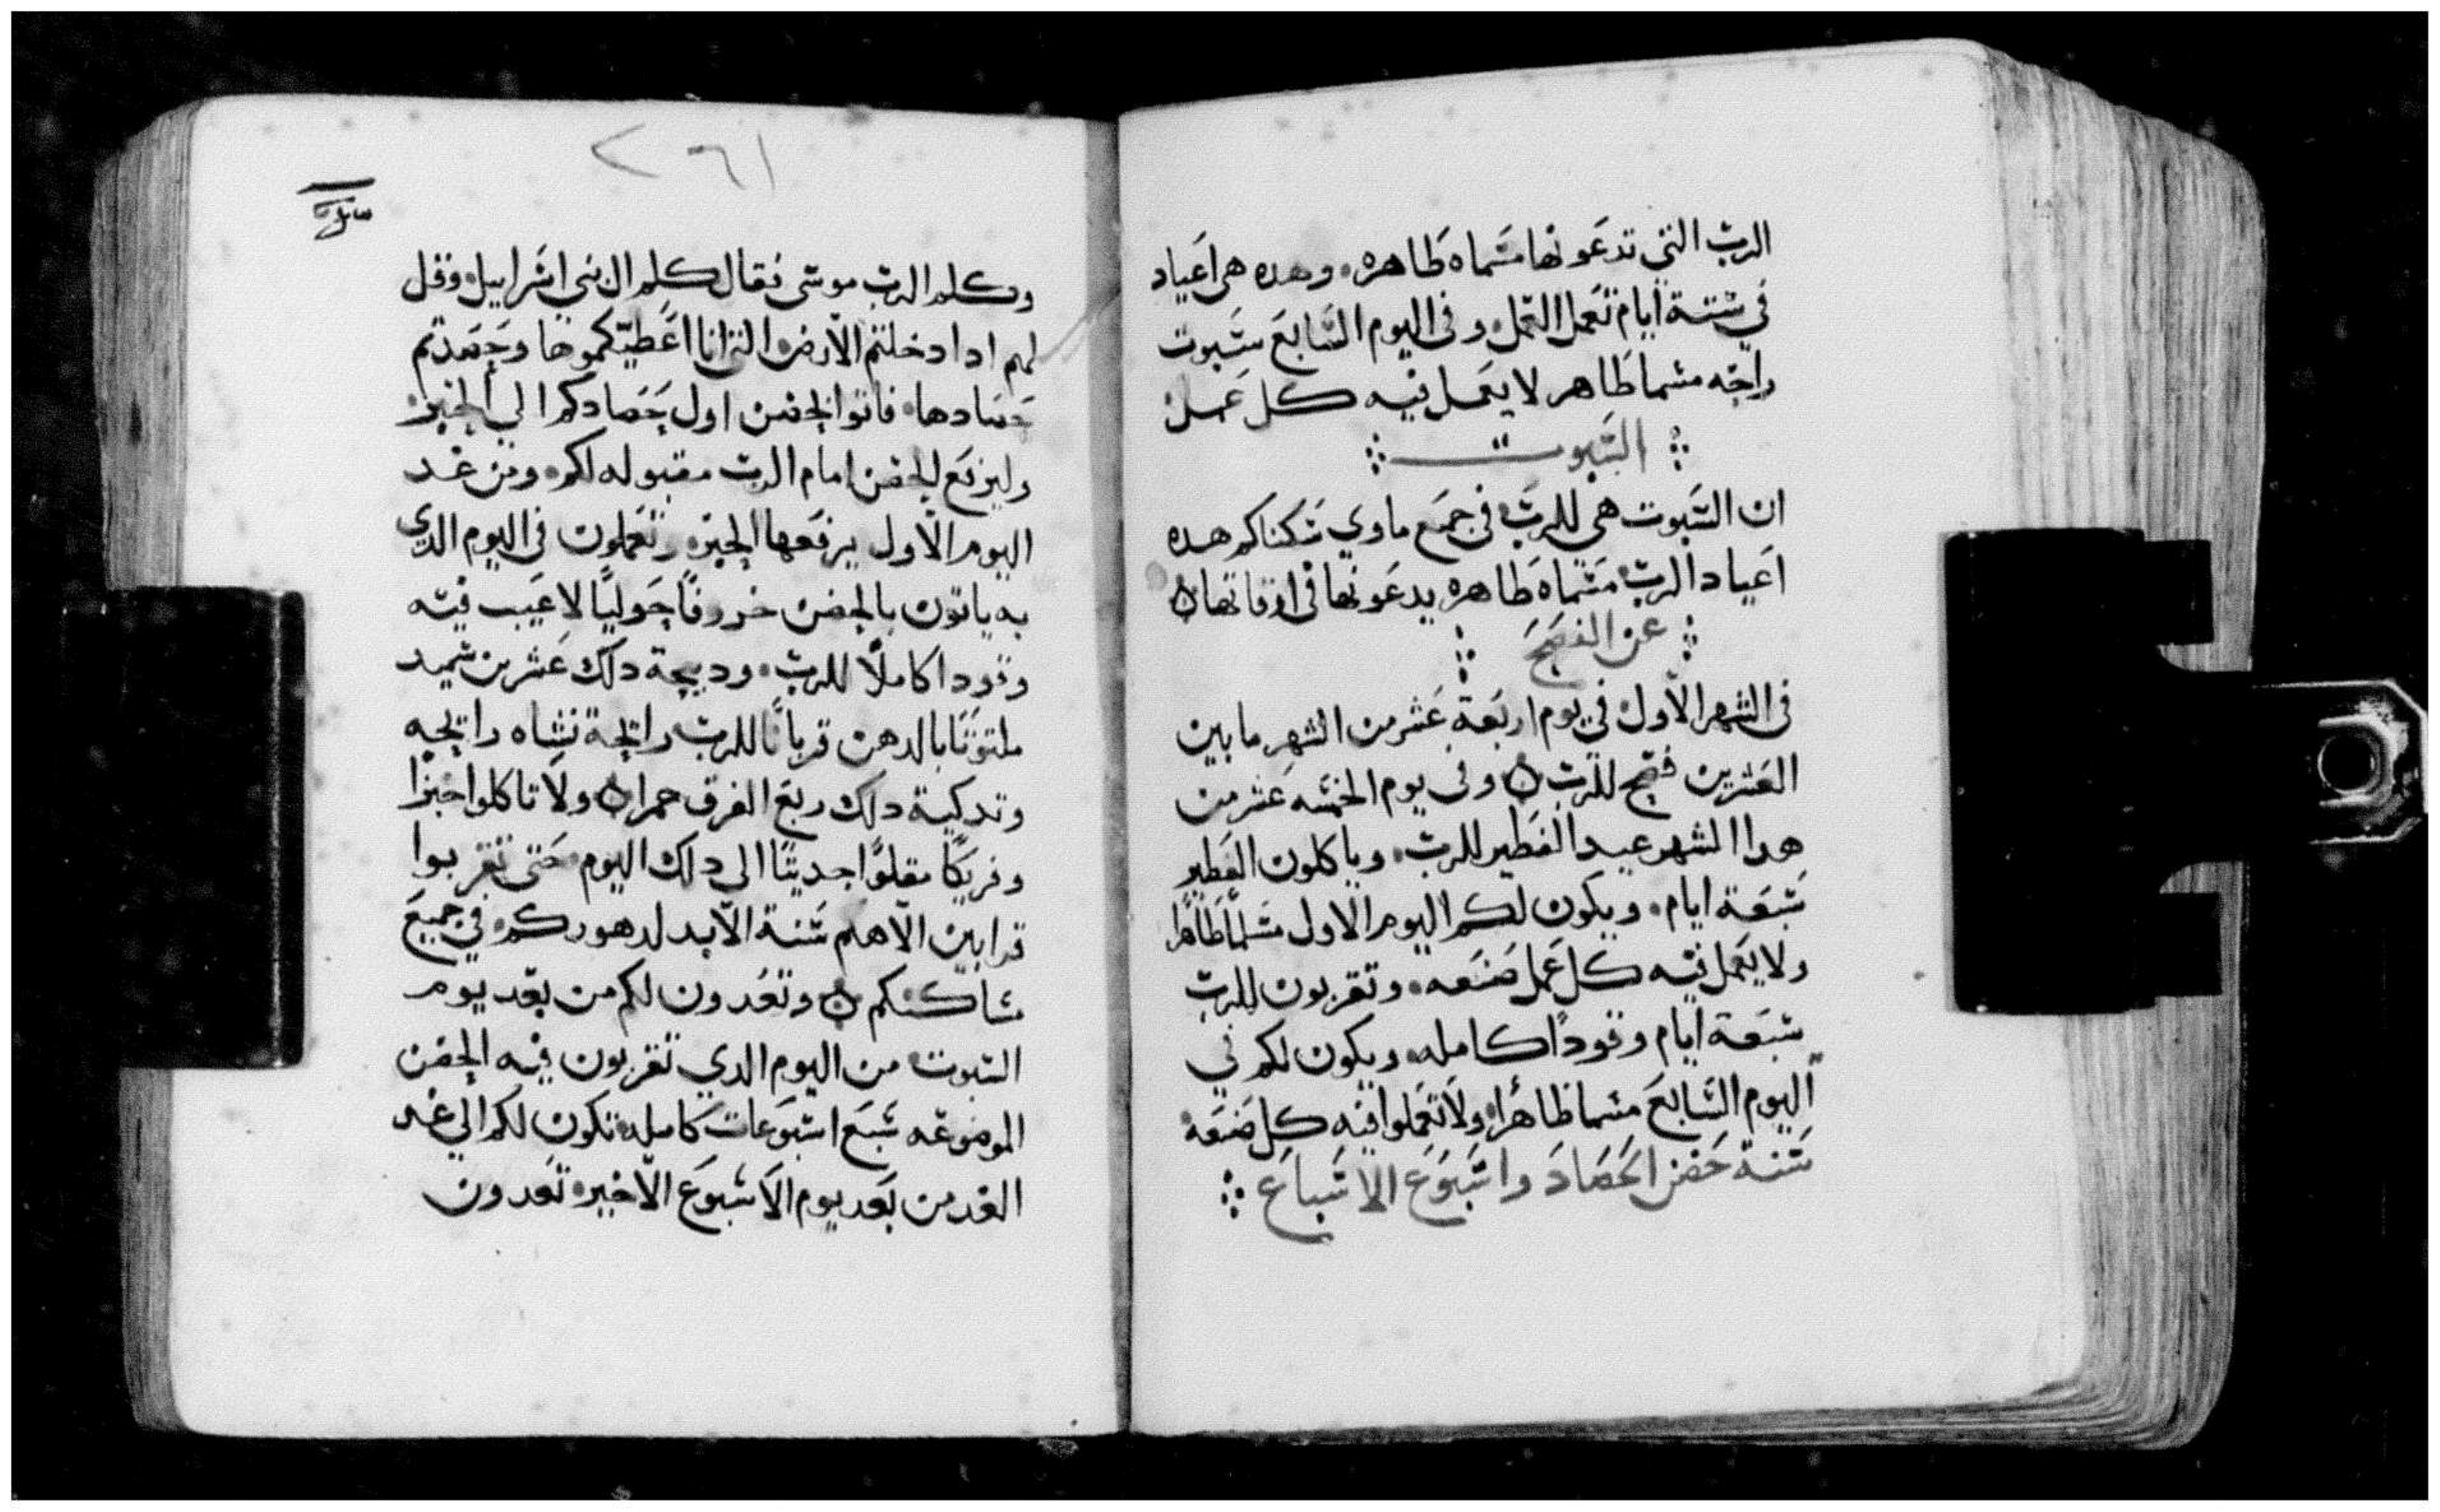 الرب التي تدعونها مسماه طاهره. وهده هي اعياد
في ستة ايام تعمل العمل. وفي اليوم السابع سبوت
راحه مسما طاهر لا يعمل فيه كل عمل.
السبوت
ان السبوت هي للرب في جميع ماوي سكناكم هده
اعياد الرب مسماه طاهره يدعونها في اوقاتها ه
عن الفصح
في الشهر الاول في يوم اربعة عشر من الشهر ما بين
العشرين فصح للرب ه وفي يوم الخمسه عشر من
هدا الشهر عيد الفطير للرب. وياكلون الفطير
سبعة ايام. ويكون لكم اليوم الاول مسما طاهرا
ولا يعمل فيه كل عمل صنعه. وتقربون للرب
سبعة ايام وقودا كامله. ويكون لكم في
اليوم السابع مسما طاهرا. ولا تعملوا فيه كل صنعه
سنة حضن الحصاد واسبوع الاسباع
٢٦١
وكلم الرب موسى فقال كلم ال بني اسراييل. وقل
لهم ادا دخلتم الارض التي انا اعطيكموها وحصدتم
حصادها. فاتوا بحضن اول حصادكم الي الحبر.
وليرفع الحضن امام الرب مقبوله لكم. ومن غد
اليوم الاول يرفعها الحبر. وتعملون في اليوم الدي
به ياتون بالحضن خروفا حوليا لا عيب فيه
وقودا كاملا للرب. ودبيحة دلك عشرين سميد
ملتوتا بالدهن قربانا للرب رايحة نشاه رايحه
وتدكية دلك ربع الفرق خمرا ه ولا تاكلوا خبزا
وفريكا مقلوا جديثا الى دلك اليوم. حتى تقربوا
قرابين الاهكم سنة الابد لدهوركم. في جميع
مساكنكم ه وتعدون لكم من بعد يوم
السبوت من اليوم الدي تقربون فيه الحضن
الموضوعه سبع اسبوعات كامله تكون لكم الي غد
الغد من بعد يوم الاسبوع الاخير. تعدون